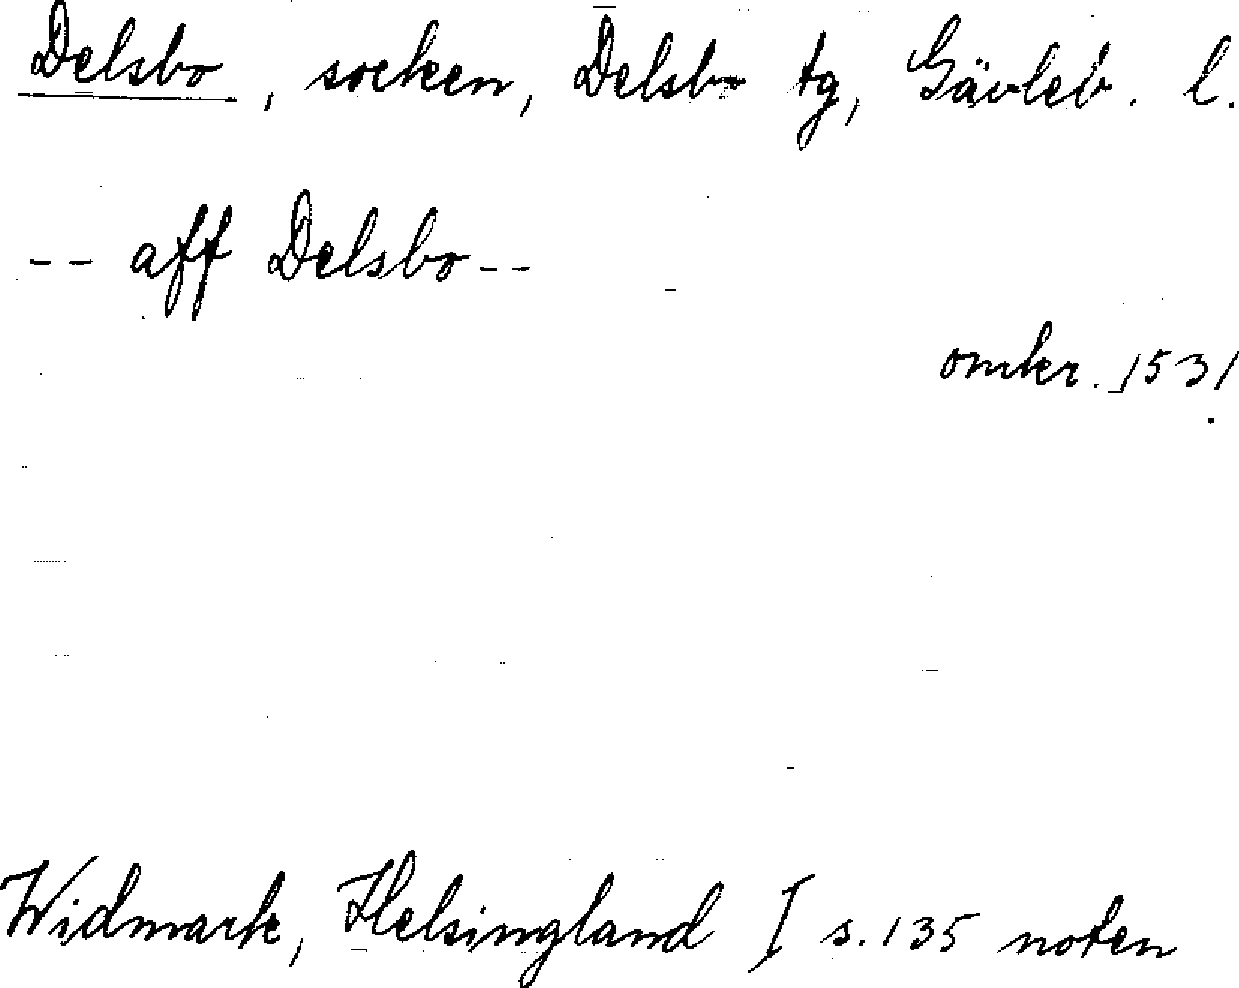 Delsbo, socken, Delsbo tg, Gävleb. l.
-- aff Delsbo --
omkr. 1531
Widmark, Helsingland I s. 135 noten